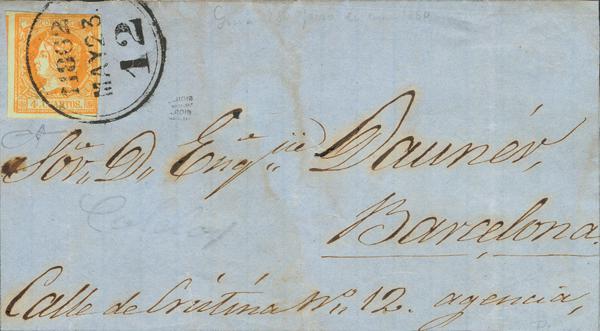 1862
MAY 23
12
4 CUARTOS.
Sor. D. Enqe Dauner,
Barcelona.
Calle de Cristina No. 12. agencia,